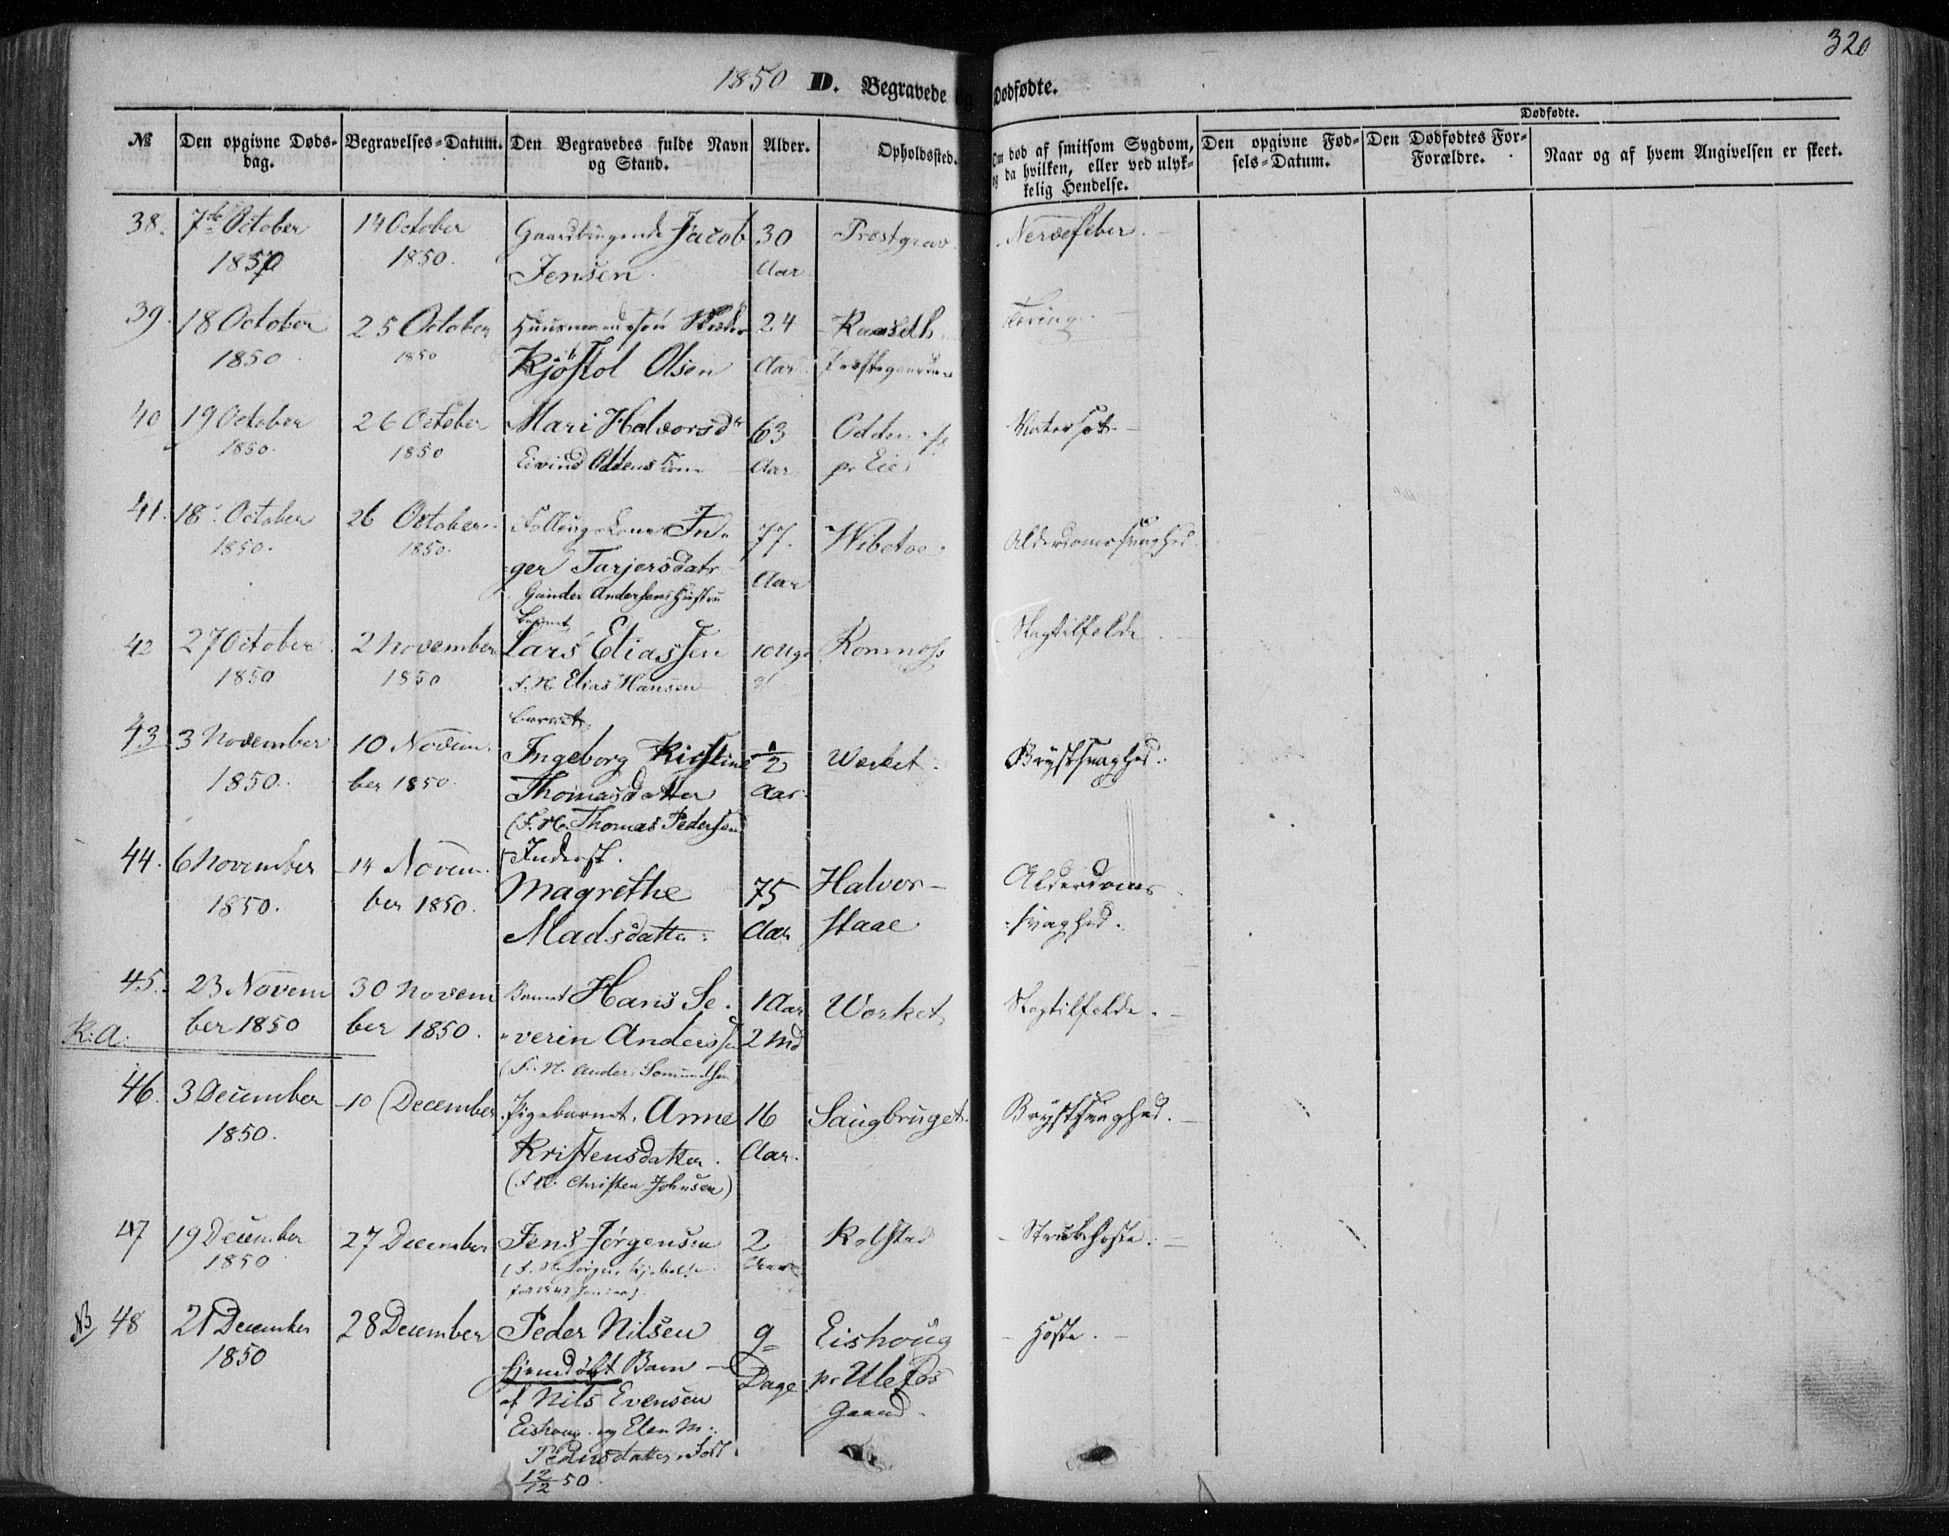 320
1850 D. Begravede og Dødfødte.
Dødfødte.
No Den opgivne Dødsdag. Begravelses-Datum. Den Begravedes fulde Navn og Stand. Alder. Opholdssted. Om død af smitsom Sygdom, og da hvilken, eller ved ulykkelig Hendelse. Den opgivne Fødsels-Datum. Den Dødfødtes Forældre. Naar og af hvem Angivelsen er skeet.
38. 7de October 14 October Jacob 30 Nervefeber.
1850 1850. Jensen. Aar
39. 18 October 25 October 24 Tæring.
1850. 1850 Kjöstol Olsen Aar
40 19 October 26 October Mari Halvorsdr 63 Vatersot.
1850. 1850 Eivind Oddens Kone Aar pr Eie
41. 18 October 26 October In- 77. Wibetoe. Alderdomssvaghed.
1850. 1850. ger Tarjersdatr Aar
Gunder Andersens Hustru
Barnet
42 27 October 2 November Lars Eliassen 10 Uger Romnæs Slagtilfælde
1850 1850 F. N. Elias Hansen
Barnet
43 3 November 10 Novem- Ingeborg Kirstine ½ Værket. Brystsvaghed.
1850. ber 1850. Thomasdatter Aar.
(F. N. Thomas Pedersen
Inderst.
44. 6 November 14 Novem- Magrethe 75 Halvor- Alderdoms
1850. ber 1850. Madsdatter. Aar staae svaghed.
45. 23 Novem 30 Novem Barnet Hans Se- 1 Aar Værket Slagtilfælde.
K: A: ber 1850 ber 1850. verin Anderssen 2 Md
(F. N. Anders
46. 3 December 10 December Pigebarnet Anne 16 Saugbruget. Brystsvaghed.
1850. Kristensdatter. Aar.
(F N. Christen Johnsen)
47 19 December 27 December Jens Jörgensen 2 Kolstad Strubehoste.
1850 Aar
NB 48 21 December 28 December Peder Nilsen 9 Eishoug Hoste.
1850 hjemdöbt Barn Dage pr Ulefos
af Nils Evensen Gaard
Eishoug og Elen M:
Pedersdatter. Födt
12/12 50.